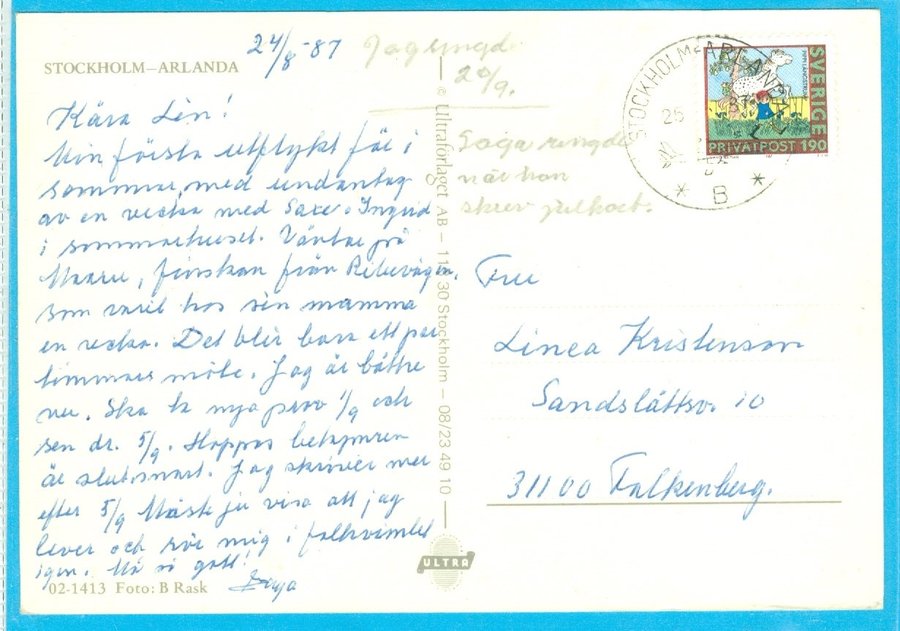 24/8-87
STOCKHOLM–ARLANDA
Kära Lin!
Min första utflykt för i
sommar, med undantag
av en vecka med Saxe o Ingrid
i sommarhuset. Väntar på
finskan från Ribevägen,
som varit hos sin mamma
en vecka. Det blir bara ett par
timmars möte. Jag är bättre
nu. Ska ta nya prov 1/9 och
sen dr. 5/9. Hoppas
är slut snart. Jag skriver mer
efter 5/9 Måste ju visa att jag
lever och rör mig i folkvimlet
igen. Må så gott!
02-1413 Foto: B Rask
Jag ringde
20/9.
ringde
när hon
skrev julkort.
© Ultraförlaget AB – 11 30 Stockholm – 08/23 49 10
ULTRA
STOCKHOLM-ARLANDA
B
PIPPI LÅNGSTRUMP
SVERIGE
PRIVATPOST 190
Fru
Linea Kristenson
Sandslättsv. 10
31100 Falkenberg.